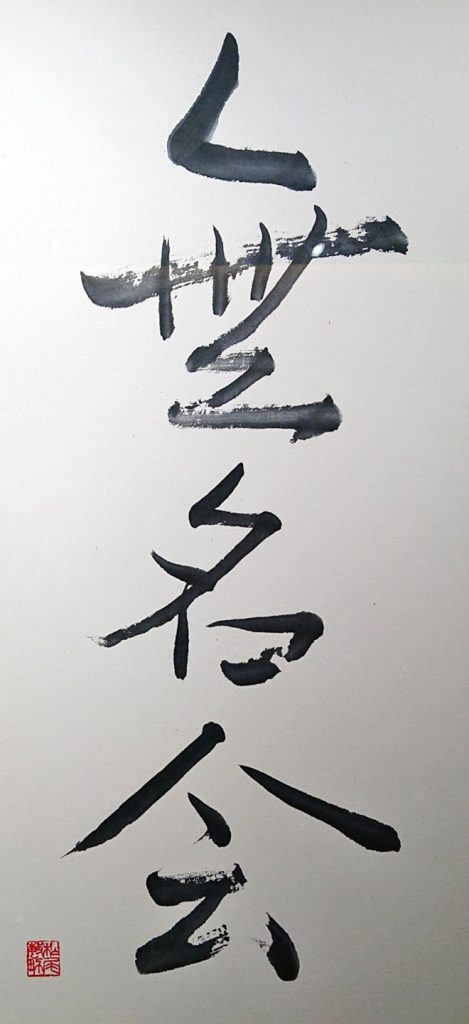 無名会